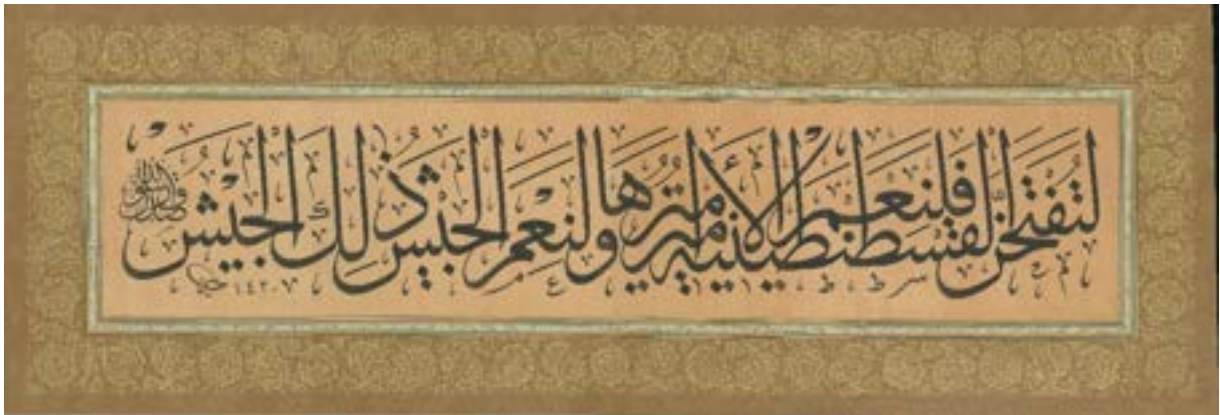 لتفتحن القسطنطينية فلنعم الأمير أميرها ولنعم الجيش ذلك الجيش
١٤٢٠